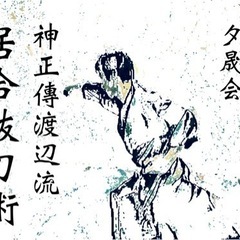 夕晟会
神正傳渡辺流
居合抜刀術